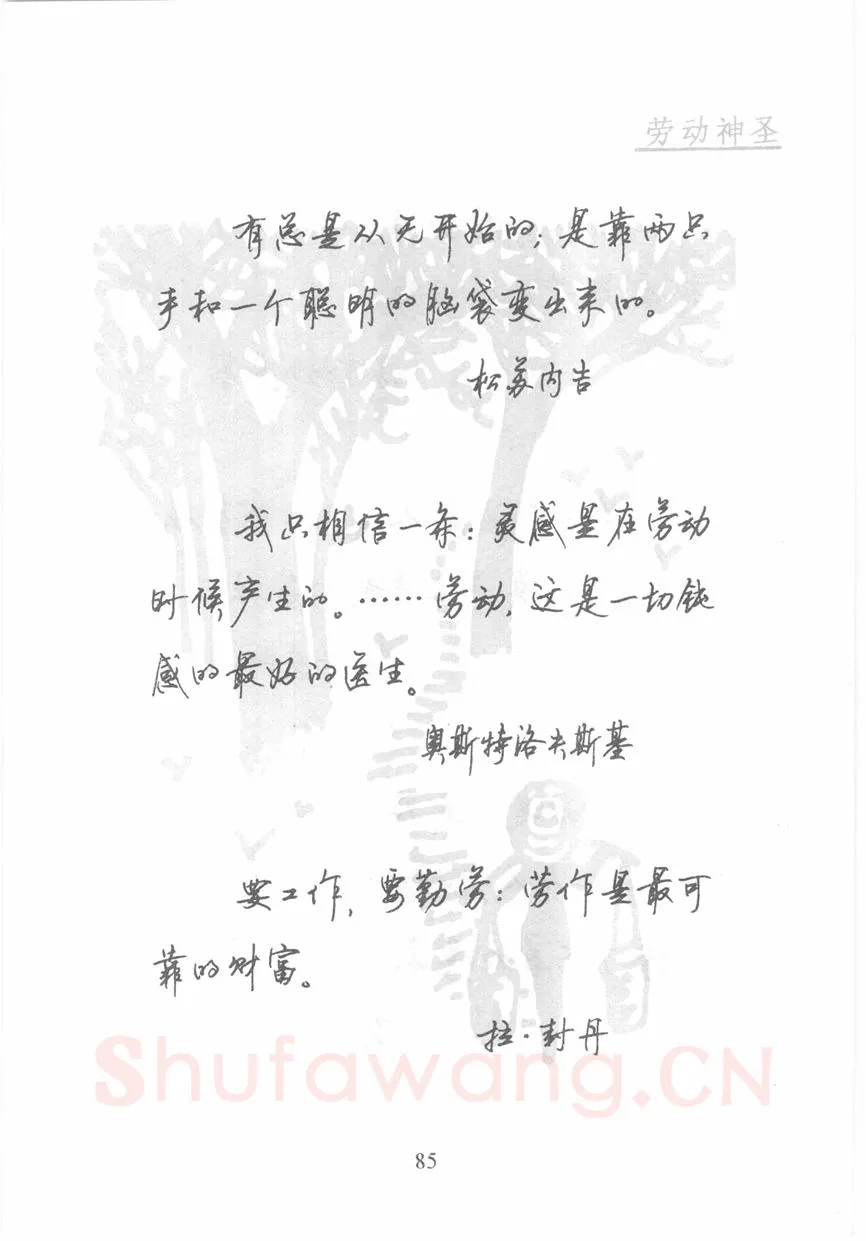 劳动神圣
有总是从无开始的；是靠两只
手和一个聪明的脑袋变出来的。
松苏内吉
我只相信一条：灵感是在劳动
时候产生的。……劳动，这是一切钝
感的最好的医生。
奥斯特洛夫斯基
要工作，要勤劳：劳作是最可
靠的财富。
拉·封丹
Shufawang.CN
85